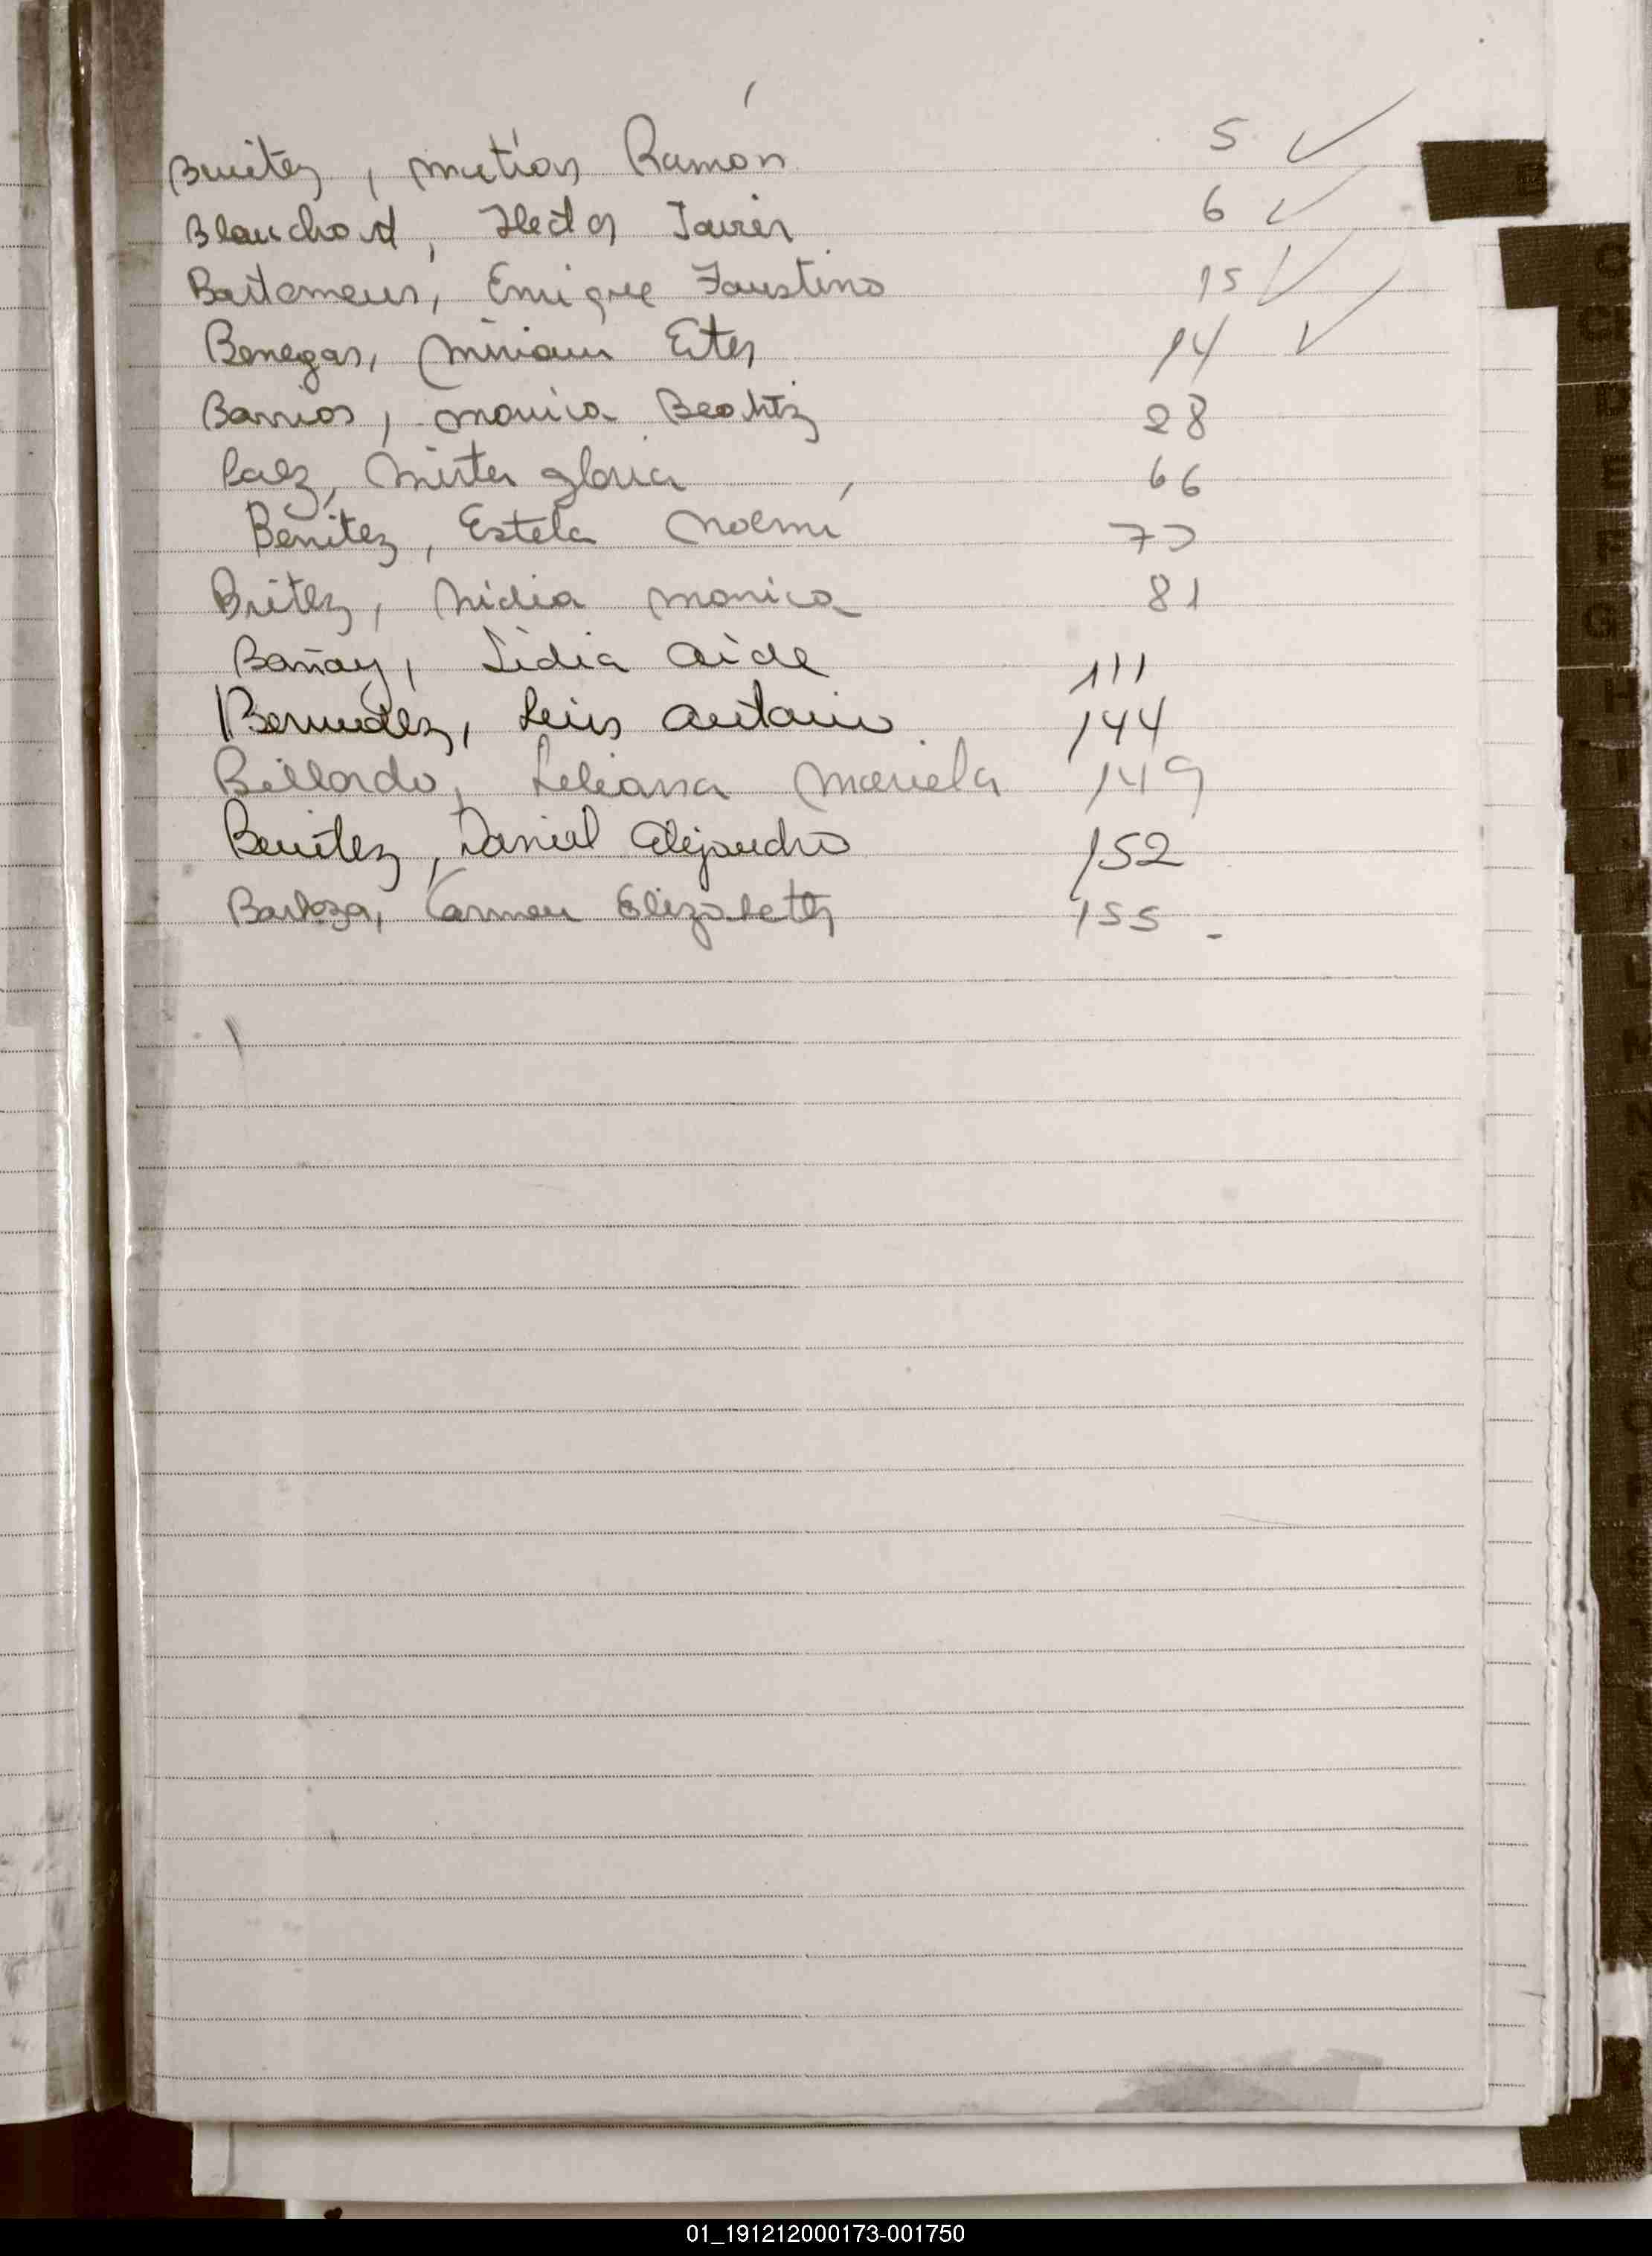 Benitez, Matías Ramón 5 ✓
Blanchard, Hector Javier 6 ✓
Bartomeus, Enrique Faustino 15 ✓
Benegas, Miriam Ester 14 ✓
Barrios, Monica Beatriz 28
Paez, Mirta gloria 66
Benitez, Estela Noemí 77
Britez, Nidia Monica 81
Bañay, Lidia Aide 111
Bermudez, Luis Antonio 144
Billordo, Liliana Mariela 149
Benitez, Daniel Alejandro 152
Barboza, Carmen Elizabeth 155
01_191212000173-001750